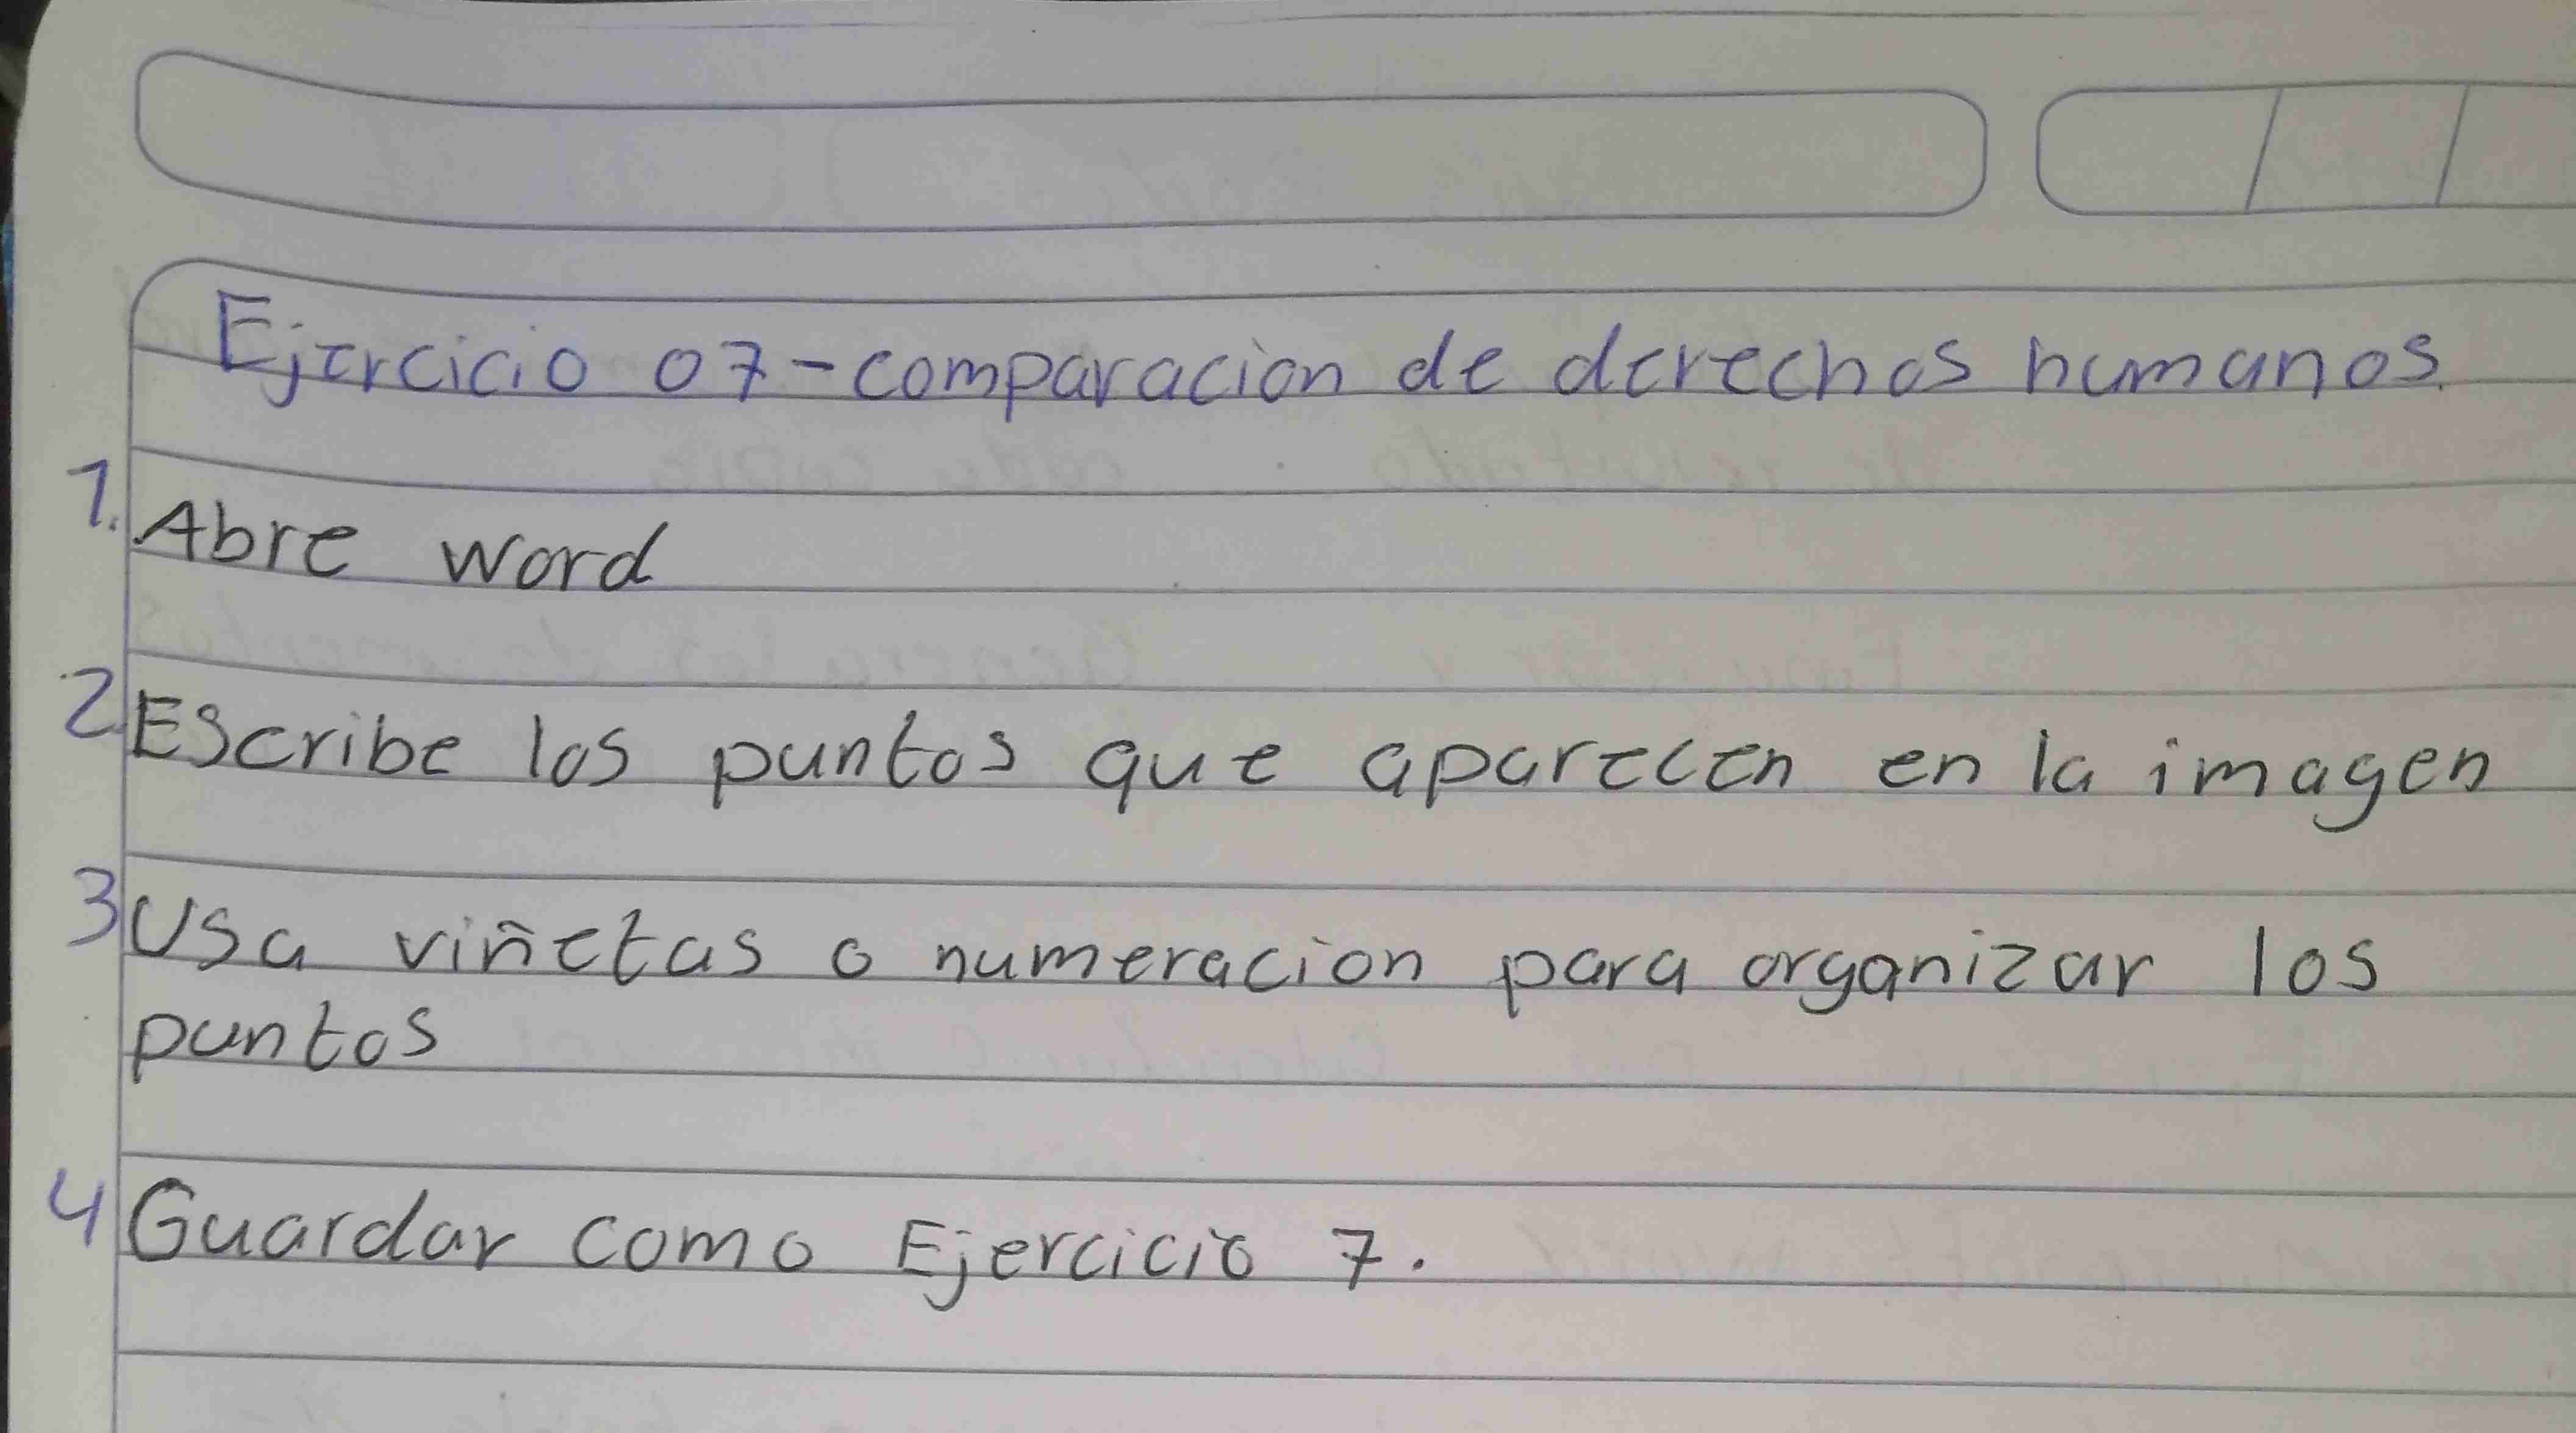 Ejercicio 07-comparacion de derechos humanos.
1. Abre word
2. Escribe los puntos que aparecen en la imagen
3 Usa viñetas o numeracion para organizar los
puntos
4 Guardar como Ejercicio 7.